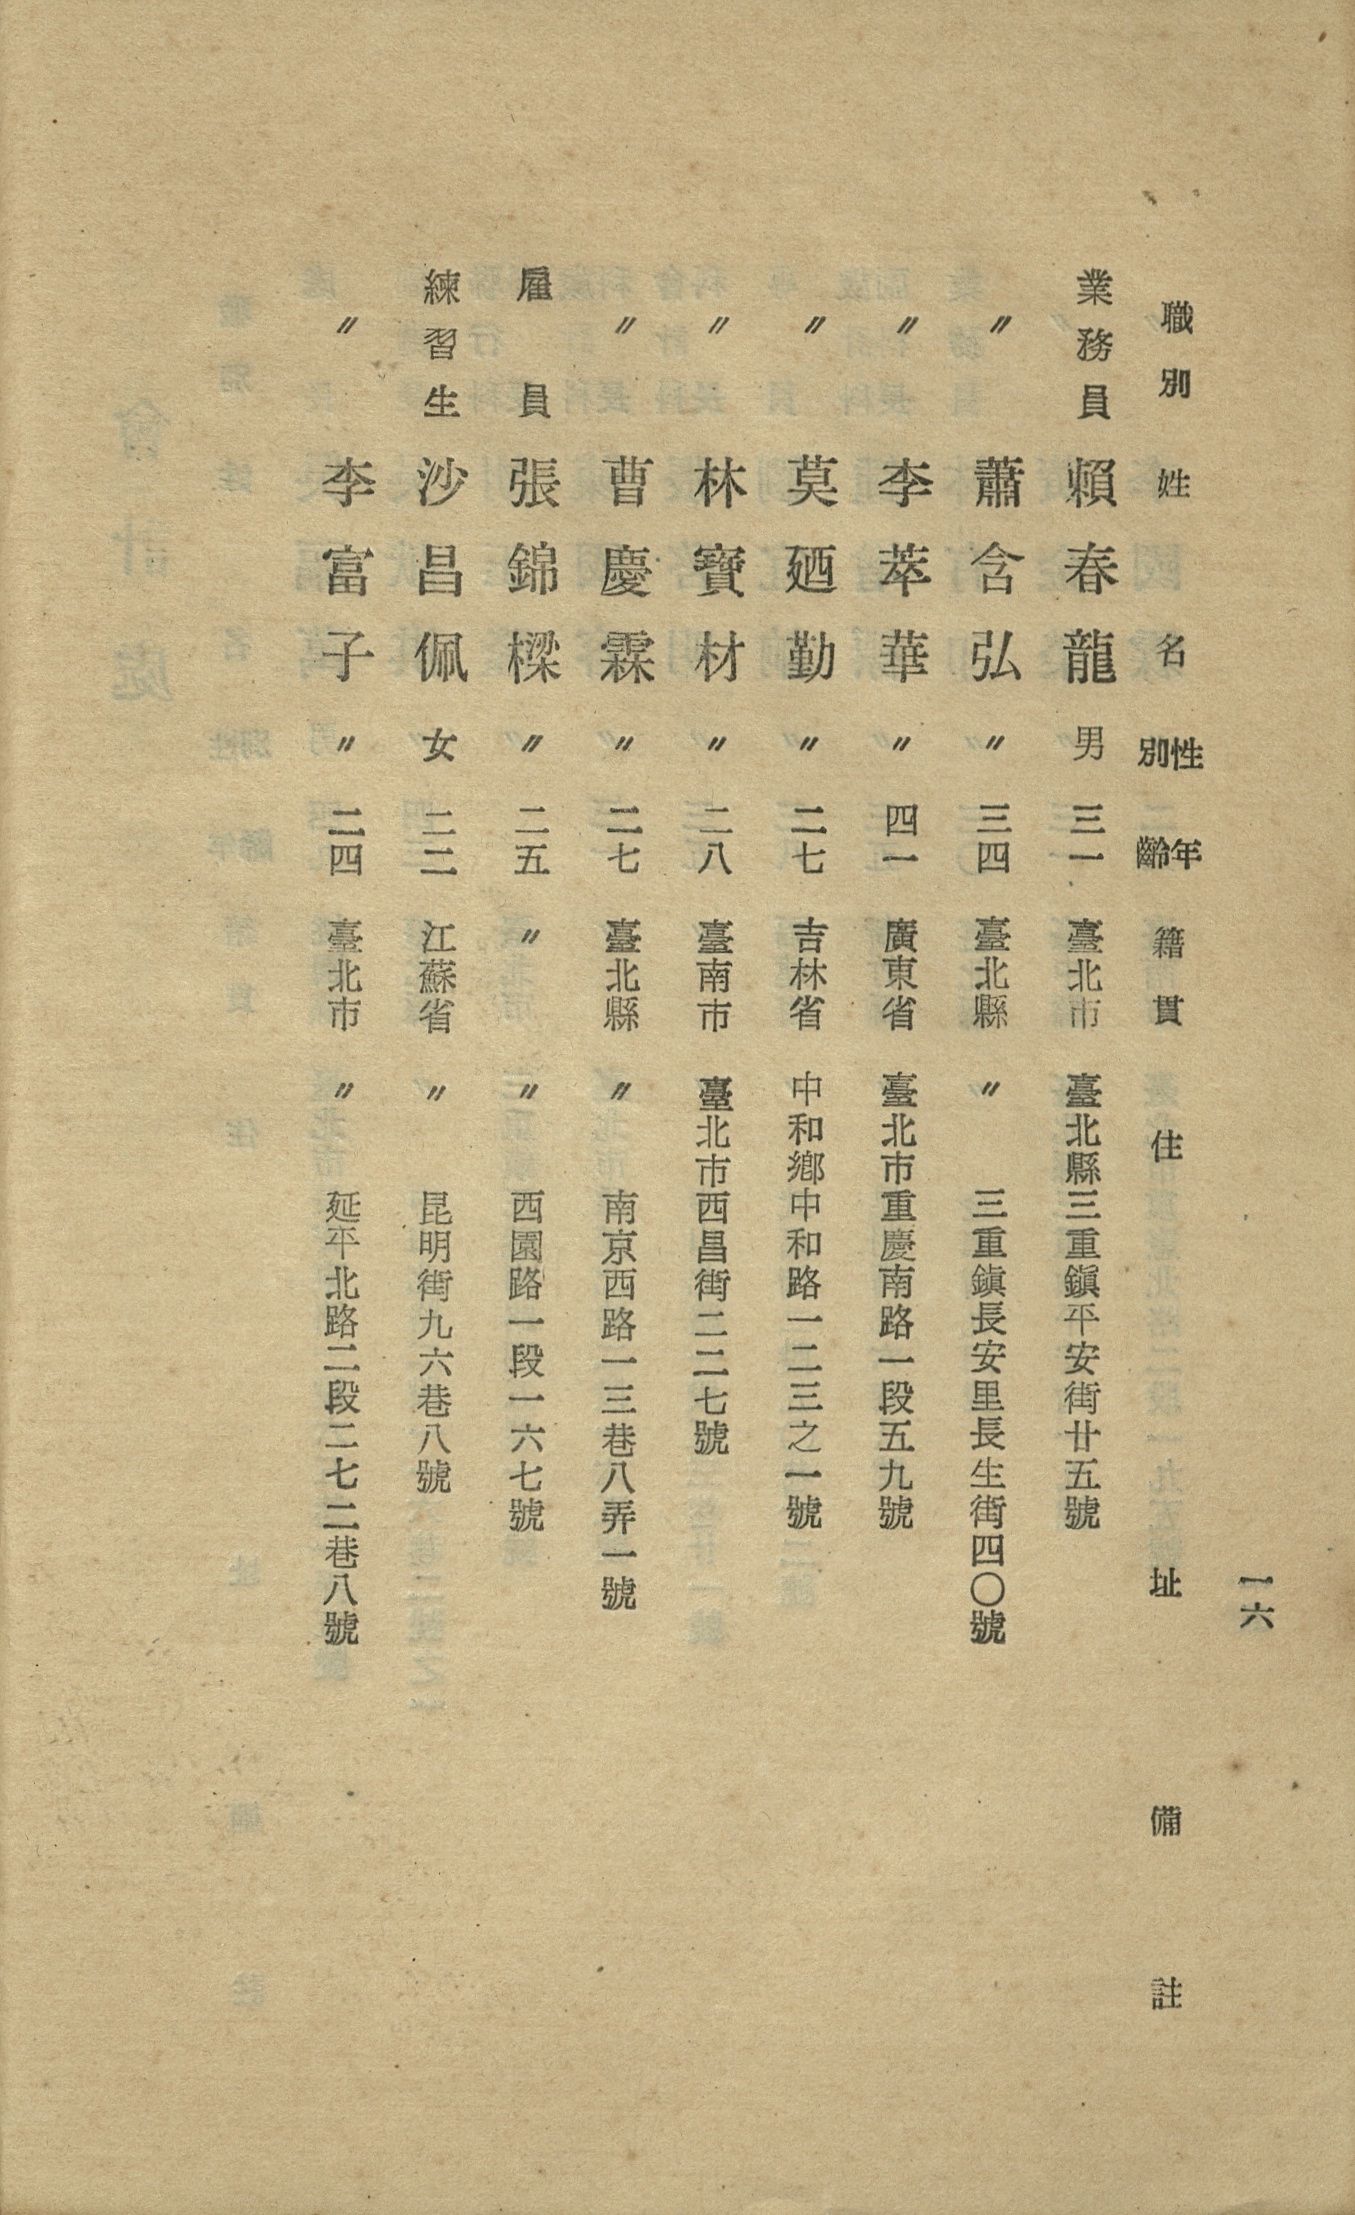 一六
職別 姓名 性別 年齡 籍貫 住址 備註
業務員 賴春龍 男 三一 臺北市 臺北縣三重鎭平安街廿五號
〃 蕭含弘 〃 三四 臺北縣 〃 三重鎭長安里長生街四〇號
〃 李萃華 〃 四一 廣東省 臺北市重慶南路一段五九號
〃 莫廼勤 〃 二七 吉林省 中和鄕中和路一二三之一號
〃 林寶材 〃 二八 臺南市 臺北市西昌街二二七號
〃 曹慶霖 〃 二七 臺北縣 〃 南京西路一三巷八弄一號
雇員 張錦樑 〃 二五 〃 〃 西園路一段一六七號
練習生 沙昌佩 女 二二 江蘇省 〃 昆明街九六巷八號
〃 李富子 〃 二四 臺北市 〃 延平北路二段二七二巷八號